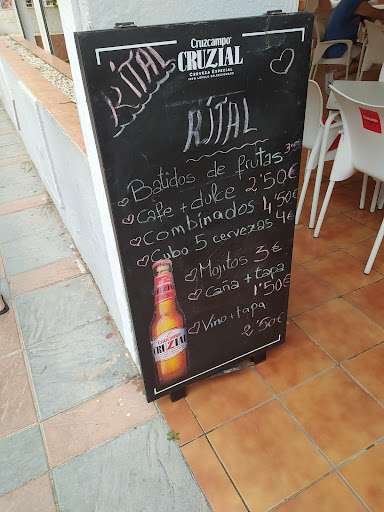 Cruzcampo
CRUZIAL
CERVEZA ESPECIAL
100% LÚPULO SELECCIONADO
RITAL
RITAL
Batidos de frutas
Cafe + dulce 2'50€
Combinados 4'50€
Cubo 5 cervezas 4€
Mojitos 3€
Caña + tapa 1'50€
Vino + tapa 2'50€
Cruzcampo
CRUZIAL